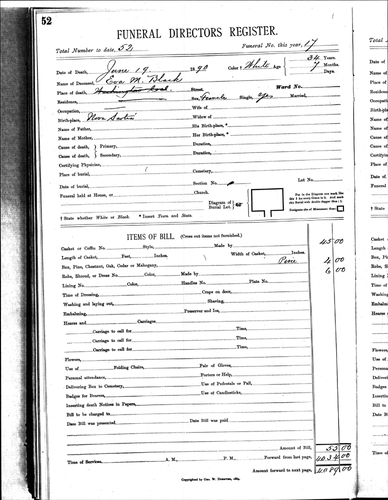 52
FUNERAL DIRECTORS REGISTER.
Total Number to date, 52 Funeral No. this year, 17
Date of Death, June 19 1890 Color † White Age 34 Years.
7 Months.
Days.
Name of Deceased, Eva M. Black
Place of death, Street. Ward No.
Residence, Sex Female Single, Yes Married,
Occupation, Wife of
Birth-place, Nova Scotia Widow of
Name of Father, His Birth-place, *
Name of Mother, Her Birth-place, *
Cause of death, Primary, Duration,
Cause of death, Secondary, Duration,
Certifying Physician,
Place of burial, Cemetery,
Date of burial, Section No. Lot No.
Funeral held at House, or Church, Diagram of Burial Lot.
† State whether White or Black. * Insert Town and State.
ITEMS OF BILL. (Cross out items not furnished.)
Casket or Coffin No. Style, Made by 45 00
Length of Casket, Feet, Inches. Width of Casket, Inches.
Box, Pine, Chestnut, Oak, Cedar or Mahogany, Pine 4 00
Robe, Shroud, or Dress No. Color, Made by 6 00
Lining No. Color, Handles No. Plate No.
Time of Dressing, Crape on door,
Washing and laying out, Shaving,
Embalming, Preserver and Ice,
Hearse and Carriages.
Carriage to call for Time,
Carriage to call for Time,
Carriage to call for Time,
Flowers,
Use of Folding Chairs, Pair of Gloves,
Personal attendance, Porters or Help,
Delivering Box to Cemetery, Use of Pedestals or Pall,
Badges for Bearers, Use of Candlesticks,
Inserting death Notices in Papers,
Bill to be charged to
Date Bill was presented Date Bill was paid
Amount of Bill, 55 00
Time of Services, A. M., P. M., Forward from last page, 4034 00
Amount forward to next page, 4089 00